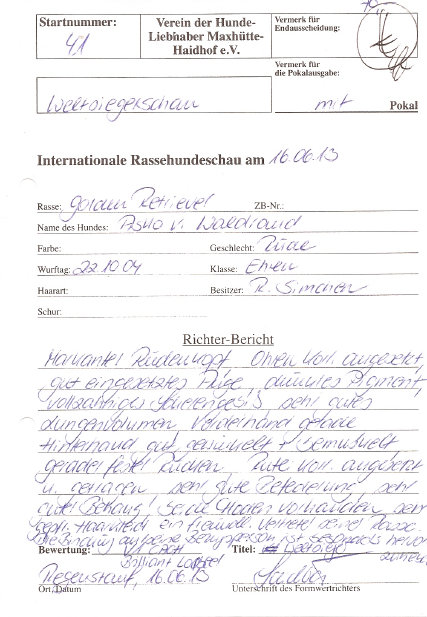 Startnummer:
41
Verein der Hunde-
Liebhaber Maxhütte-
Haidhof e.V.
Vermerk für
Endausscheidung:
Vermerk für
die Pokalausgabe:
mit Pokal
Weltsiegerschau
Internationale Rassehundeschau am 16.06.13
Rasse: Golden Retriever ZB-Nr.:
Name des Hundes: v. Waldrand
Farbe: Geschlecht: Rüde
Wurftag: 22.10.04 Klasse: Ehren
Haarart: Besitzer: R. Simchen
Schur:
Richter-Bericht
Markanter Rüdenkopf, Ohren korr. angesetzt,
gut eingesetztes Auge, dunkles Pigment,
vollzahniges Scherengebiß, sehr gutes
Lungenvolumen, Vorderhand gerade
Hinterhand gut gewinkelt + bemuskelt,
gerader fester Rücken, Rute korr. angesetzt
u. getragen, sehr gute Befederung, sehr
guter Behang, beide Hoden vorhanden, sehr
gepfl. Haarkleid, ein freundl. Vertreter seiner Rasse
Die Bindung auf seine Bezugsperson ist besonders hervor
zuheben
Bewertung: V1 Titel:
Brillant
16.06.13
Ort, Datum Unterschrift des Formwertrichters